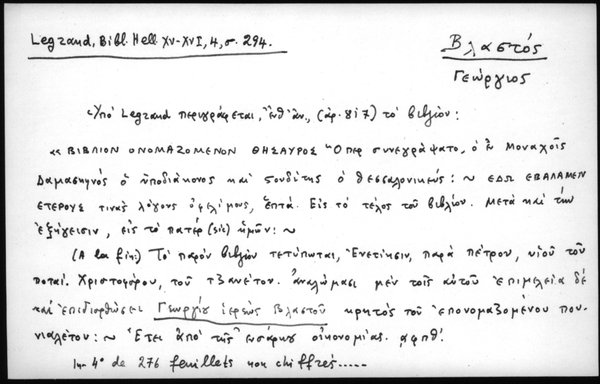 Legrand, Bibl. Hell. XV-XVI, 4, σ. 294.
Βλαστός
Γεώργιος
Ὑπό Legrand περιγράφεται, ἔνθ' ἀν., (ἀρ. 817) τό βιβλίον:
«ΒΙΒΛΙΟΝ ΟΝΟΜΑΖΟΜΕΝΟΝ ΘΗΣΑΥΡΟΣ Ὅπερ συνεγράψατο, ὁ ἐν Μοναχοῖς
Δαμασκηνός ὁ ὑποδιάκονος καί στουδίτης ὁ θεσσαλονικεύς: ~ ΕΔΩ ΕΒΑΛΑΜΕΝ
ΕΤΕΡΟΥΣ τινάς λόγους ὀφελίμους, ἑπτά. Εἰς τό τέλος τοῦ βιβλίου. Μετά καί τήν
ἐξήγεισιν, εἰς τό πατέρ (sic) ἡμῶν: ~
(A la fin:) Τό παρόν βιβλίον τετύπωται, Ἐνετίησιν, παρά πέτρου, υἱοῦ τοῦ
ποταί. Χριστοφόρου, τοῦ τζανέτου. ἀναλώμασι μέν τοῖς αὐτοῦ ἐπιμελεία δέ
καί ἐπιδιορθώσει Γεωργίου ἱερέως Βλαστοῦ κρητός τοῦ ἐπονομαζομένου που-
νιαλέτου: ~ Ἔτει ἀπό τῆς ἐνσάρκου οἰκονομίας. ͵αφπθ΄.
In-4° de 276 feuillets non chiffrés.....